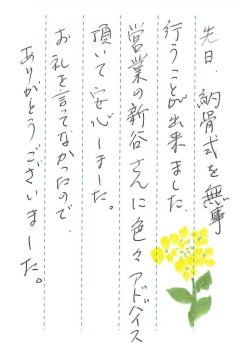 先日、納骨式を無事
行うことが出来ました。
営業の新谷さんに色々アドバイス
頂いて安心しました。
お礼を言ってなかったので
ありがとうございました。